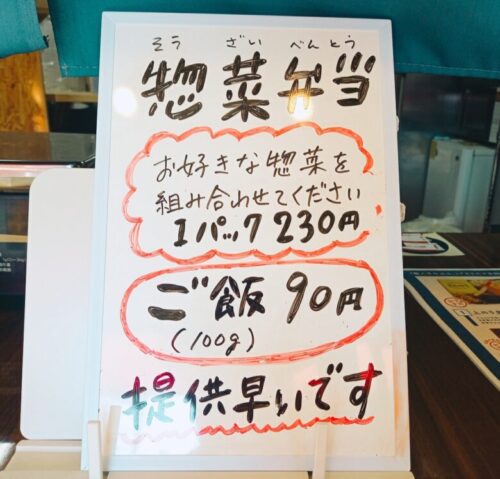 そう ざい べんとう
惣菜弁当
お好きな惣菜を
組み合わせてください
1パック230円
ご飯 90円
(100g)
提供早いです